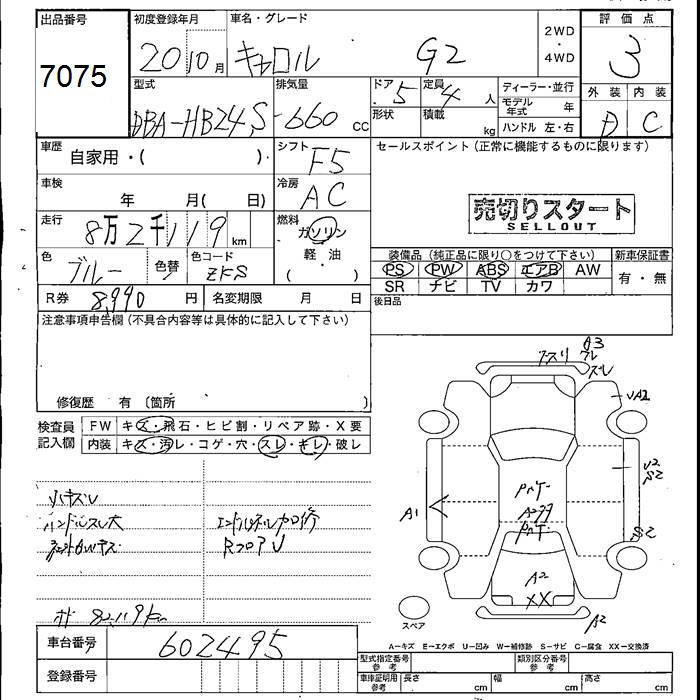 出品番号
7075
初度登録年月
20 10月
車名・グレード
キャロル G2
2WD
・
4WD
評価点
3
型式
DBA-HB24S
排気量
660 cc
ドア
5
定員
4 人
形状
積載
kg
ディーラー・並行
モデル年式 年
ハンドル 左・右
外装 内装
D C
車歴
自家用・( )・
シフト
F5
セールスポイント (正常に機能するものに限ります)
車検
年 月( 日)
冷房
AC
売切りスタート
SELLOUT
走行
8万2千119km
燃料
ガソリン
軽・油
( )
色
ブルー
色替
色コード
ZKS
装備品 (純正品に限り○をつけて下さい)
新車保証書
PS PW ABS エアB AW
SR ナビ TV カワ
有・無
R券 8,990 円
名変期限 月 日
後日品
注意事項申告欄 (不具合内容等は具体的に記入して下さい)
修復歴 有 〔箇所 〕
検査員記入欄
FW キズ・飛石・ヒビ割・リペア跡・X要
内装 キズ・汚レ・コゲ・穴・スレ・キレ・破レ
ハンドルスレ大
Rフロア U
82,119km
A3
スレ
UA2
A1
S2
S2
A2
XX
A2
スペア
A−キズ E−エクボ U−凹み W−補修跡 S−サビ C−腐食 XX−交換済
車台番号
602495
登録番号
型式指定番号
参考
類別区分番号
参考
車庫証明用
参考
長さ cm
幅 cm
高さ cm